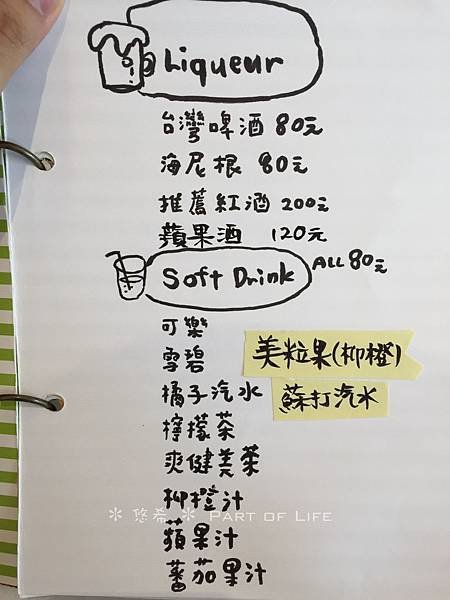 Liqueur
台灣啤酒 80元
海尼根 80元
推薦紅酒 200元
蘋果酒 120元
Soft Drink ALL 80元
可樂
雪碧
美粒果(柳橙)
橘子汽水
蘇打汽水
檸檬茶
爽健美茶
柳橙汁
✽ 悠希 ✽ PART OF LIFE
蘋果汁
蕃茄果汁